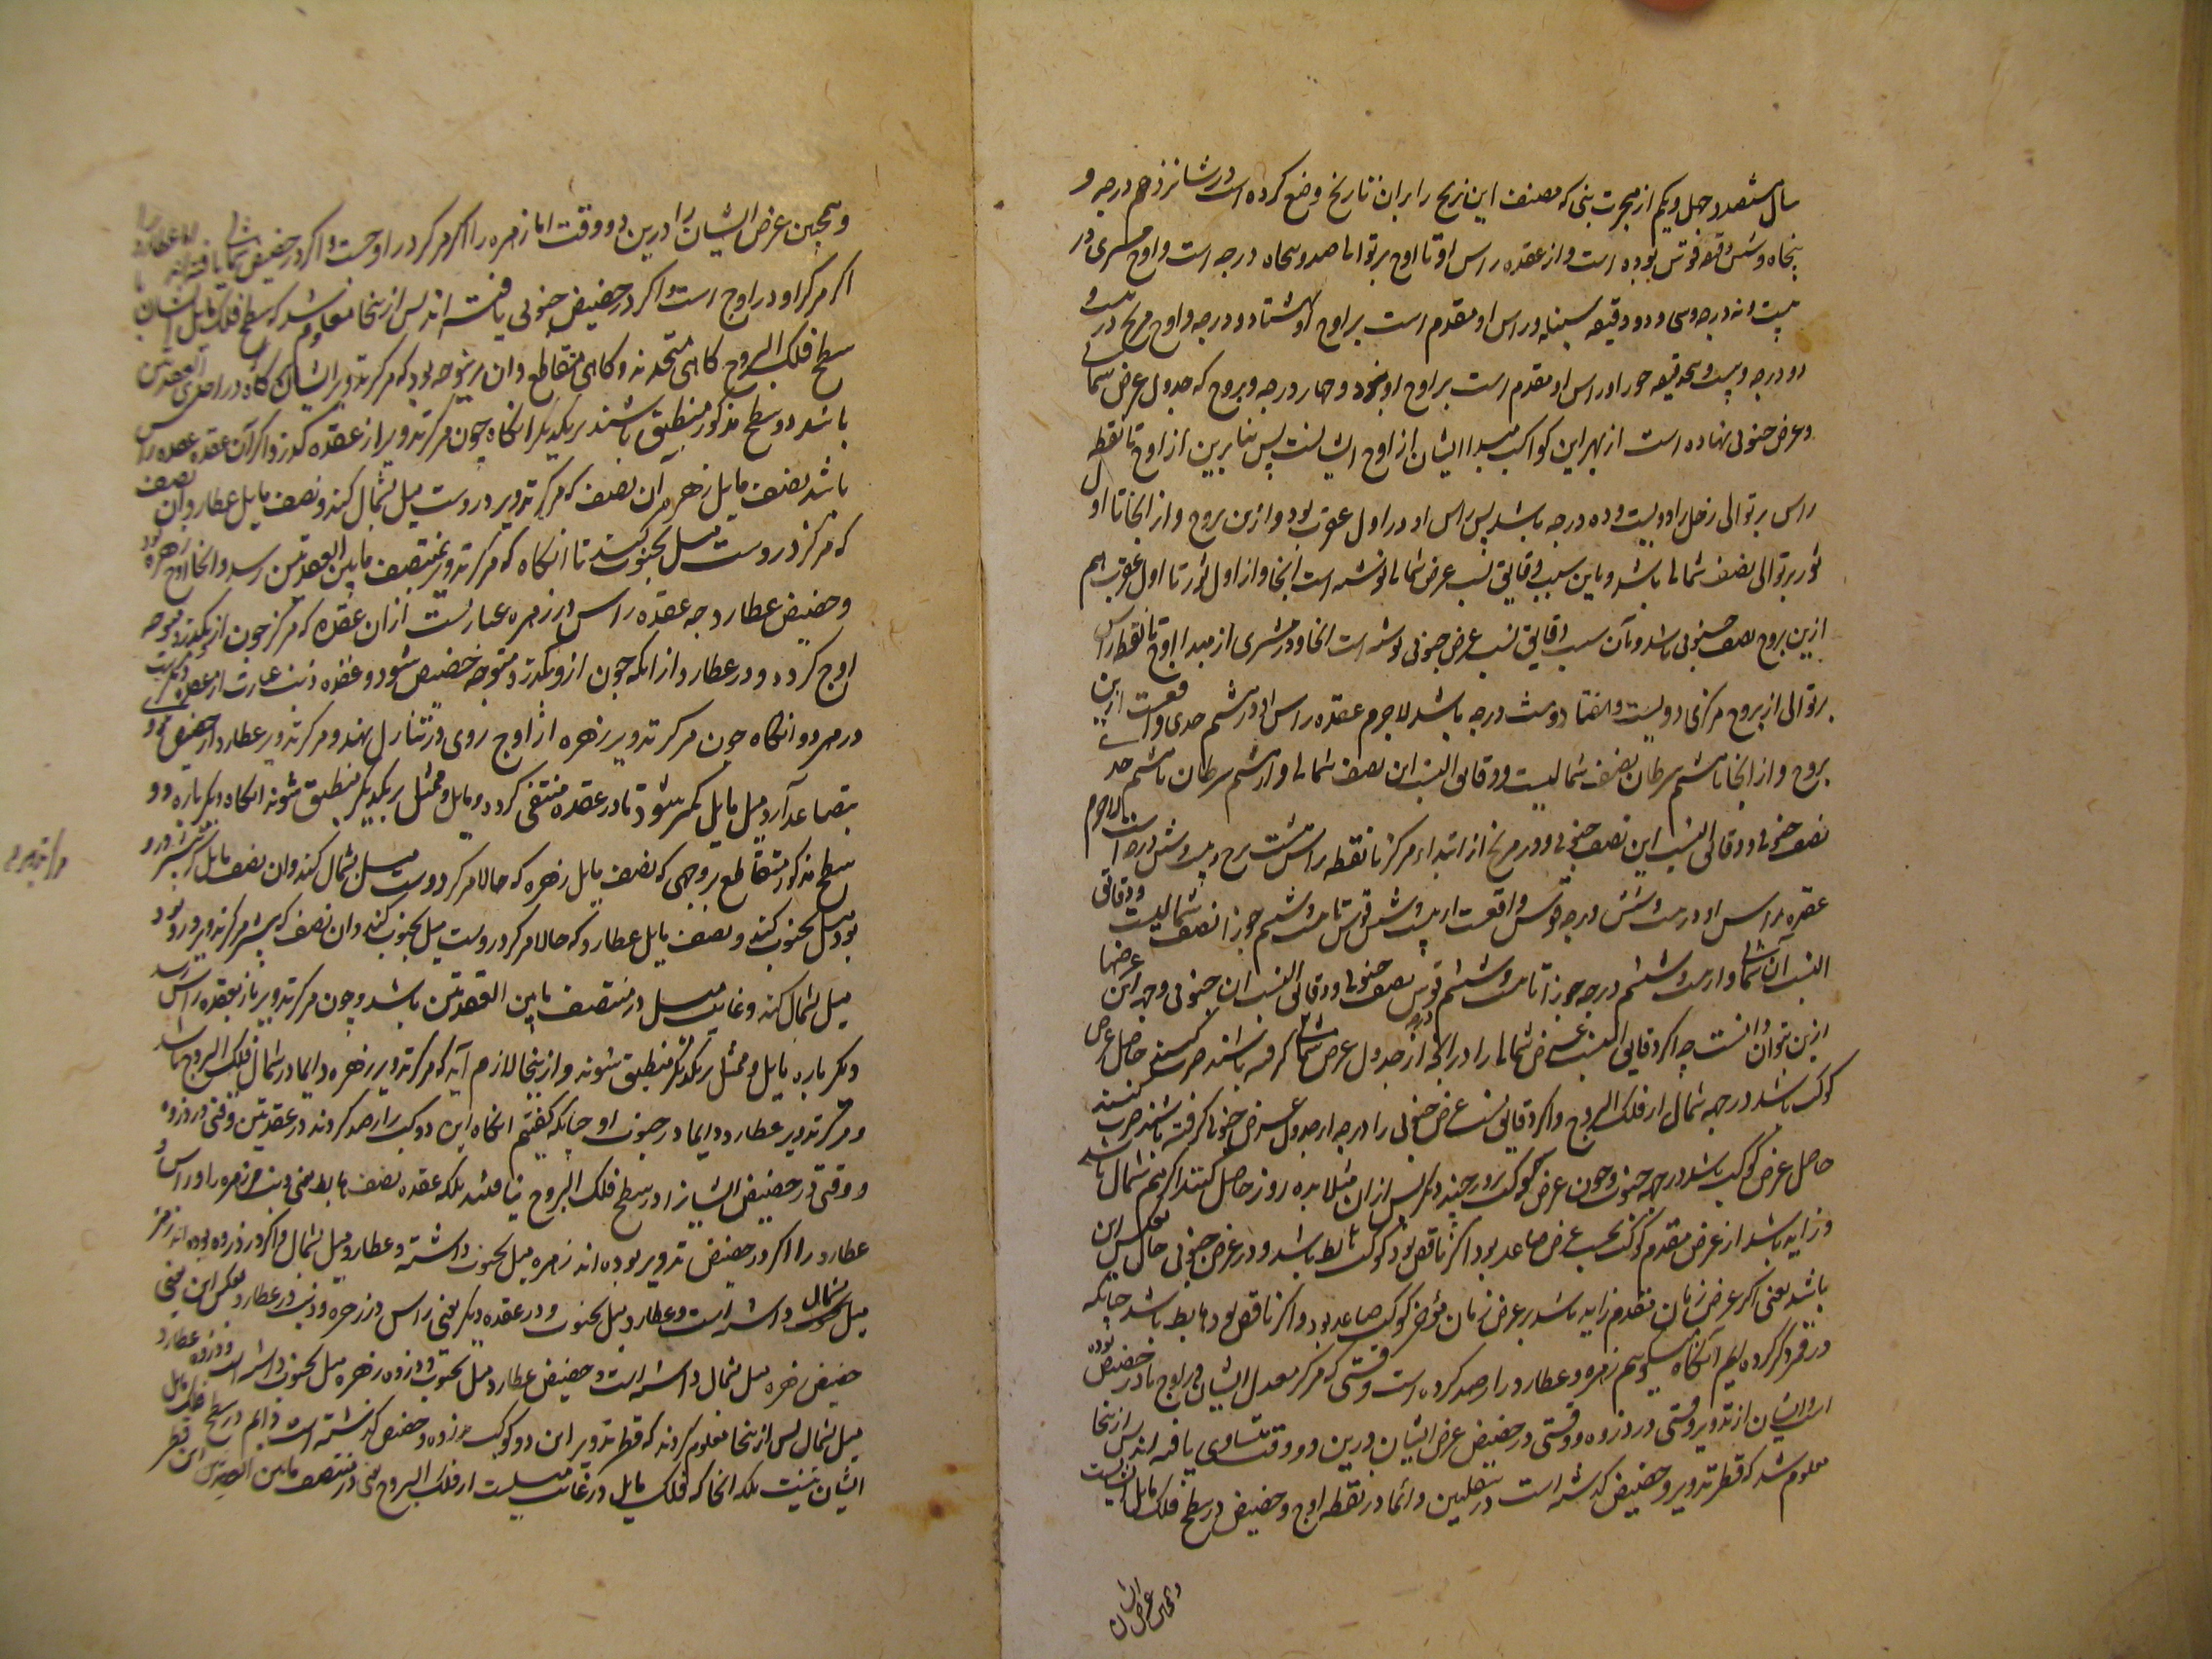 سال ششصد و چهل و یکم از هجرت نبی که مصنف این زیج را بران تاریخ وضع کرده است در شانزدهم درجه و
پنجاه و شش دقیقه قوس بوده است و از عقده راس او تا اوج بر توالی صد و پنجاه درجه است و اوج مشتری در
بیست و نه درجه و سی و دو دقیقه سنبله و راس او مقدم است بر اوج او هشتاد و دو درجه و اوج مریخ در
دو درجه و بیست و دقیقه جوزا و راس او مقدم است بر اوج او نود و چهار درجه و بروج که جدول عرض شمالی
و عرض جنوبی نهاده است از بهر این کواکب مبدا ایشان از اوج ایشانست پس بنابرین از اوج تا نقطه
راس بر توالی زحل را دویست و ده درجه باشد پس راس او در اول عقرب بود و ازین بروج و از انجا تا اول
ثور بر توالی نصف شمالی باشد و باین سبب دقایق نسب عرض شمالی نوشته است انجا و از اول ثور تا اول عقرب هم
ازین بروج نصف جنوبی باشد و بآن سبب دقایق نسب عرض جنوبی نوشته است انجا و در مشتری از مبدا اوج تا نقطه راس
بر توالی از بروج مرکزی دویست و هفتاد و هشت درجه باشد لاجرم عقده راس او در ششم جدی واقعست ازین
بروج و از انجا تا ششم سرطان نصف شمالیست و دقایق النسب این نصف شمالی و از ششم سرطان تا ششم جدی
نصف جنوبی و دقایق النسب این نصف جنوبی و در مریخ از ابتداء مرکز تا نقطه راس هشت برج و بیست و شش درجه است لاجرم
عقده راس او در بیست و شش درجه قوس واقعست از بیست و شش قوس تا بیست و ششم جوزا نصف شمالیست و دقایق
النسب آن شمالی و از بیست و ششم درجه جوزا تا بیست و ششم قوس نصف جنوبی و دقایق النسب ان جنوبی و جهة این عرضها
ازین بتوان دانست چه اگر دقایق النسب عرض شمالی را در انچه از جدول عرض شمالی گرفته باشند ضرب کنند حاصل عرض
کوکب باشد در جهة شمال از فلک البروج و اگر دقایق نسب عرض جنوبی را در انچه از جدول عرض جنوبی گرفته باشند ضرب کنند
حاصل عرض کوکب باشد در جهة جنوب و چون عرض کوکب روز چند دیگر پس از ان مثلا بده روز حاصل کنند اگر هم شمالی باشد
و زاید باشد از عرض مقدم کوکب بحسب عرض صاعد بود اگر ناقص بود کوکب هابط باشد و در عرض جنوبی حال بعکس این
باشد یعنی اگر عرض زمان متقدم زاید باشد بر عرض زمان مؤخر کوکب صاعد بود و اگر ناقص بود هابط باشد چنانکه
در قمر ذکر کرده ایم آنگاه میگوییم زهره و عطارد را رصد کرده است وقتی که مرکز معدل ایشان در اوج یا در حضیض بوده
است و ایشان از تدویر وقتی در ذروه و وقتی در حضیض عرض ایشان درین دو وقت متساوی یافته اند پس ازینجا
معلوم شد که قطر تدویر و حضیض گذشته است در سفلیین دائما در نقطه اوج و حضیض در سطح فلک مایل ایشانست
و همچنین عرض ایشان
و همچنین عرض ایشان را درین دو وقت اما زهره را اگر مرکز در اوجست و اگر در حضیض شمالی یافته اند اما عطارد را
اگر مرکز او در اوج است و اگر در حضیض جنوبی یافته اند پس ازینجا معلوم شد که سطح فلک مایل ایشان با
سطح فلک البروج گاهی متحدند و گاهی متقاطع و ان برین وجه بود که مرکز تدویر ایشان گاه در احدی العقدتین
باشد دو سطح مذکور منطبق باشند بر یکدیگر انگاه چون مرکز تدویر از عقده گذرد اگر آن عقده عقده راس
باشد نصف مایل زهره آن نصف که مرکز تدویر دروست میل بشمال کند و نصف مایل عطارد آن نصف
که مرکز دروست میل بجنوب کند تا آنگاه که مرکز تدویر بمنتصف مابین العقدتین رسد و انجا اوج زهره بود
و حضیض عطارد چه عقده راس در زهره عبارتست از ان عقده که مرکز چون ازو بگذرد متوجه
اوج گردد و در عطارد از انکه چون ازو بگذرد متوجه حضیض شود و عقده ذنب عبارت از عقده دیگرست
در هر دو انگاه چون مرکز تدویر زهره از اوج روی در تنازل نهد و مرکز تدویر عطارد از حضیض روی
بتصاعد آرد میل مایل کمتر شود تا در عقده منتفی گردد و مایل و ممثل بر یکدیگر منطبق شوند انگاه دیگر باره دو
سطح مذکور متقاطع بر وجهی که نصف مایل زهره که حالا مرکز دروست میل بشمال کند و ان نصف مایل که پیشتر درو
بود میل بجنوب کند و نصف مایل عطارد که حالا مرکز دروست میل بجنوب کند و ان نصف که پیشتر مرکز تدویر درو بود
میل بشمال کند و غایت میل در منتصف مابین العقدتین باشد و چون مرکز تدویر باز بعقده راس رسد
دیگر باره مایل و ممثل بر یکدیگر منطبق شوند و ازینجا لازم آید که مرکز تدویر زهره دایما در شمال فلک البروج باشد
و مرکز تدویر عطارد دایما در جنوب او چنانکه گفتیم انگاه این دو کوکب را رصد کردند در عقدتین وقتی در ذروه
و وقتی در حضیض ایشان را در سطح فلک البروج نیافتند بلکه عقده نصف هابط یعنی ذنب زهره را و راس
عطارد را اگر در حضیض تدویر بوده اند زهره میل بجنوب داشته و عطارد میل بشمال و اگر در ذروه بوده اند زهره
میل بشمال داشته است و عطارد میل بجنوب و در عقده دیگر یعنی راس در زهره و ذنب در عطارد بعکس این یعنی
حضیض زهره میل بشمال داشته است و حضیض عطارد میل بجنوب و ذروه زهره میل بجنوب داشته است و ذروه عطارد
میل بشمال پس ازینجا معلوم کردند که قطر تدویر این دو کوکب بذروه و حضیض گذشته است دایم در سطح فلک مایل
ایشان نیست بلکه انجا که فلک مایل در غایت میلست از فلک البروج یعنی در منتصف مابین العقدتین این قطر